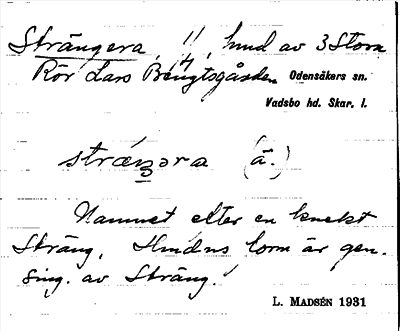 Strängera, 11, hmd av 3 Stora
Rör Lars Bengtsgården Odensåkers sn.
14
Vadsbo hd. Skar. l.
stræŋəra (ä.)
Namnet efter en knekt
Sträng. Hmdns form är gen.
sing. av Sträng.
L. MADSÉN 1931